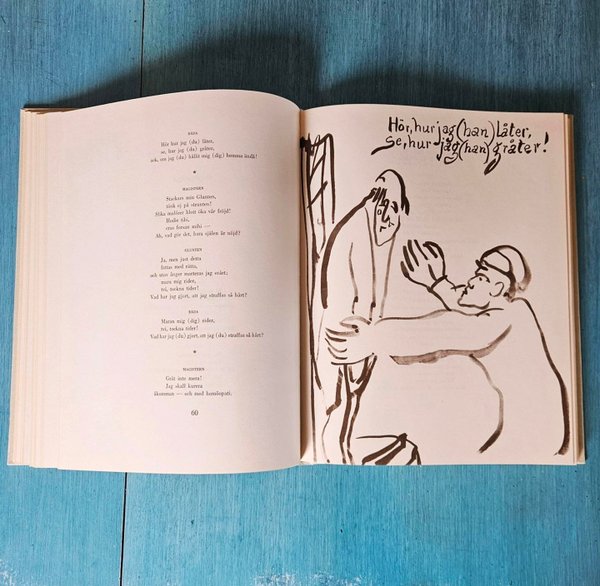 BÅDA
Hör hur jag (du) låter,
se, hur jag (du) gråter,
ack, om jag (du) hållit mig (dig) hemma ändå!
*
MAGISTERN
Stackars min Glunten,
tänk ej på strunten!
Slika malörer blott öka vår fatigd!
Hodie tibi,
cras forsan mihi —
Ah, vad gör det, bara själen är nöjd?
GLUNTEN
Ja, men just detta
fattas med rätta,
och utav ånger marteras jag svårt;
mina mig svider,
tvi, tocknа tider!
Vad har jag gjort, att jag straffas så hårt?
BÅDA
Maran mig (dig) rider,
tvi, tockna tider!
Vad har jag (du) gjort, att jag (du) straffas så hårt?
*
MAGISTERN
Gråt inte mera!
Jag skall kurera
åkomman — och med homöopati.
60
Hör, hur jag (han) låter,
Se, hur jag (han) gråter!